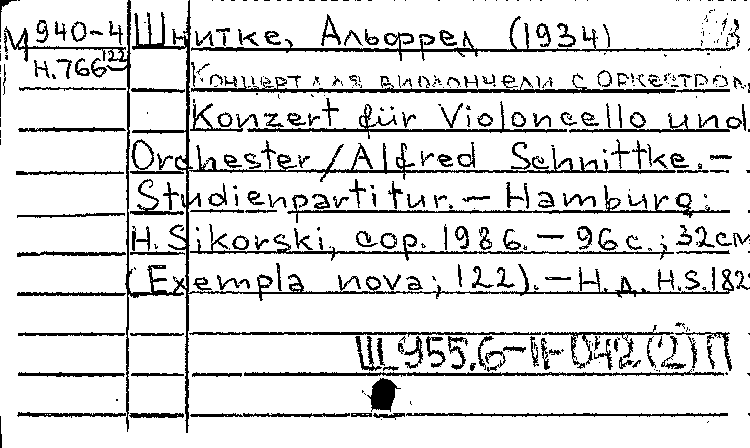 М 940-4 Шнитке, Альфред (1934)
Н.766 122 Концерт для виолончели с оркестром
Konzert für Violoncello und
Orchester / Alfred Schnittke. —
Studienpartitur. — Hamburg:
H. Sikorski, cop. 1986. — 96 с.; 32см
(Exempla nova; 122). — Н. д. H.S.182
Ш 955.6-II-042(2) П